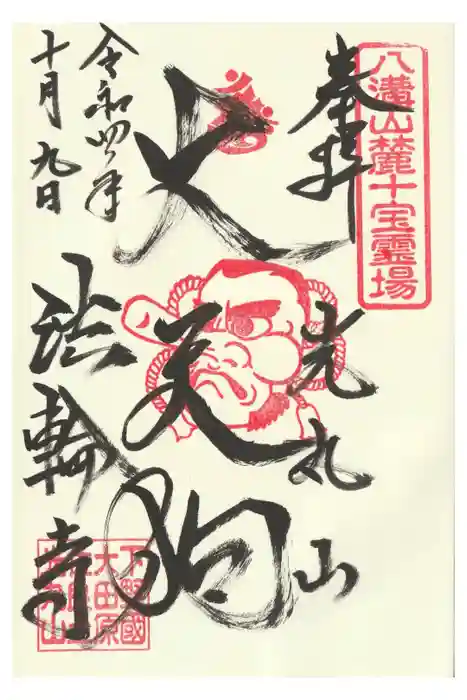 八溝山麓十宝霊場
奉拝
光丸山
天狗
法輪寺
令和四年
十月九日
下野國
大田原